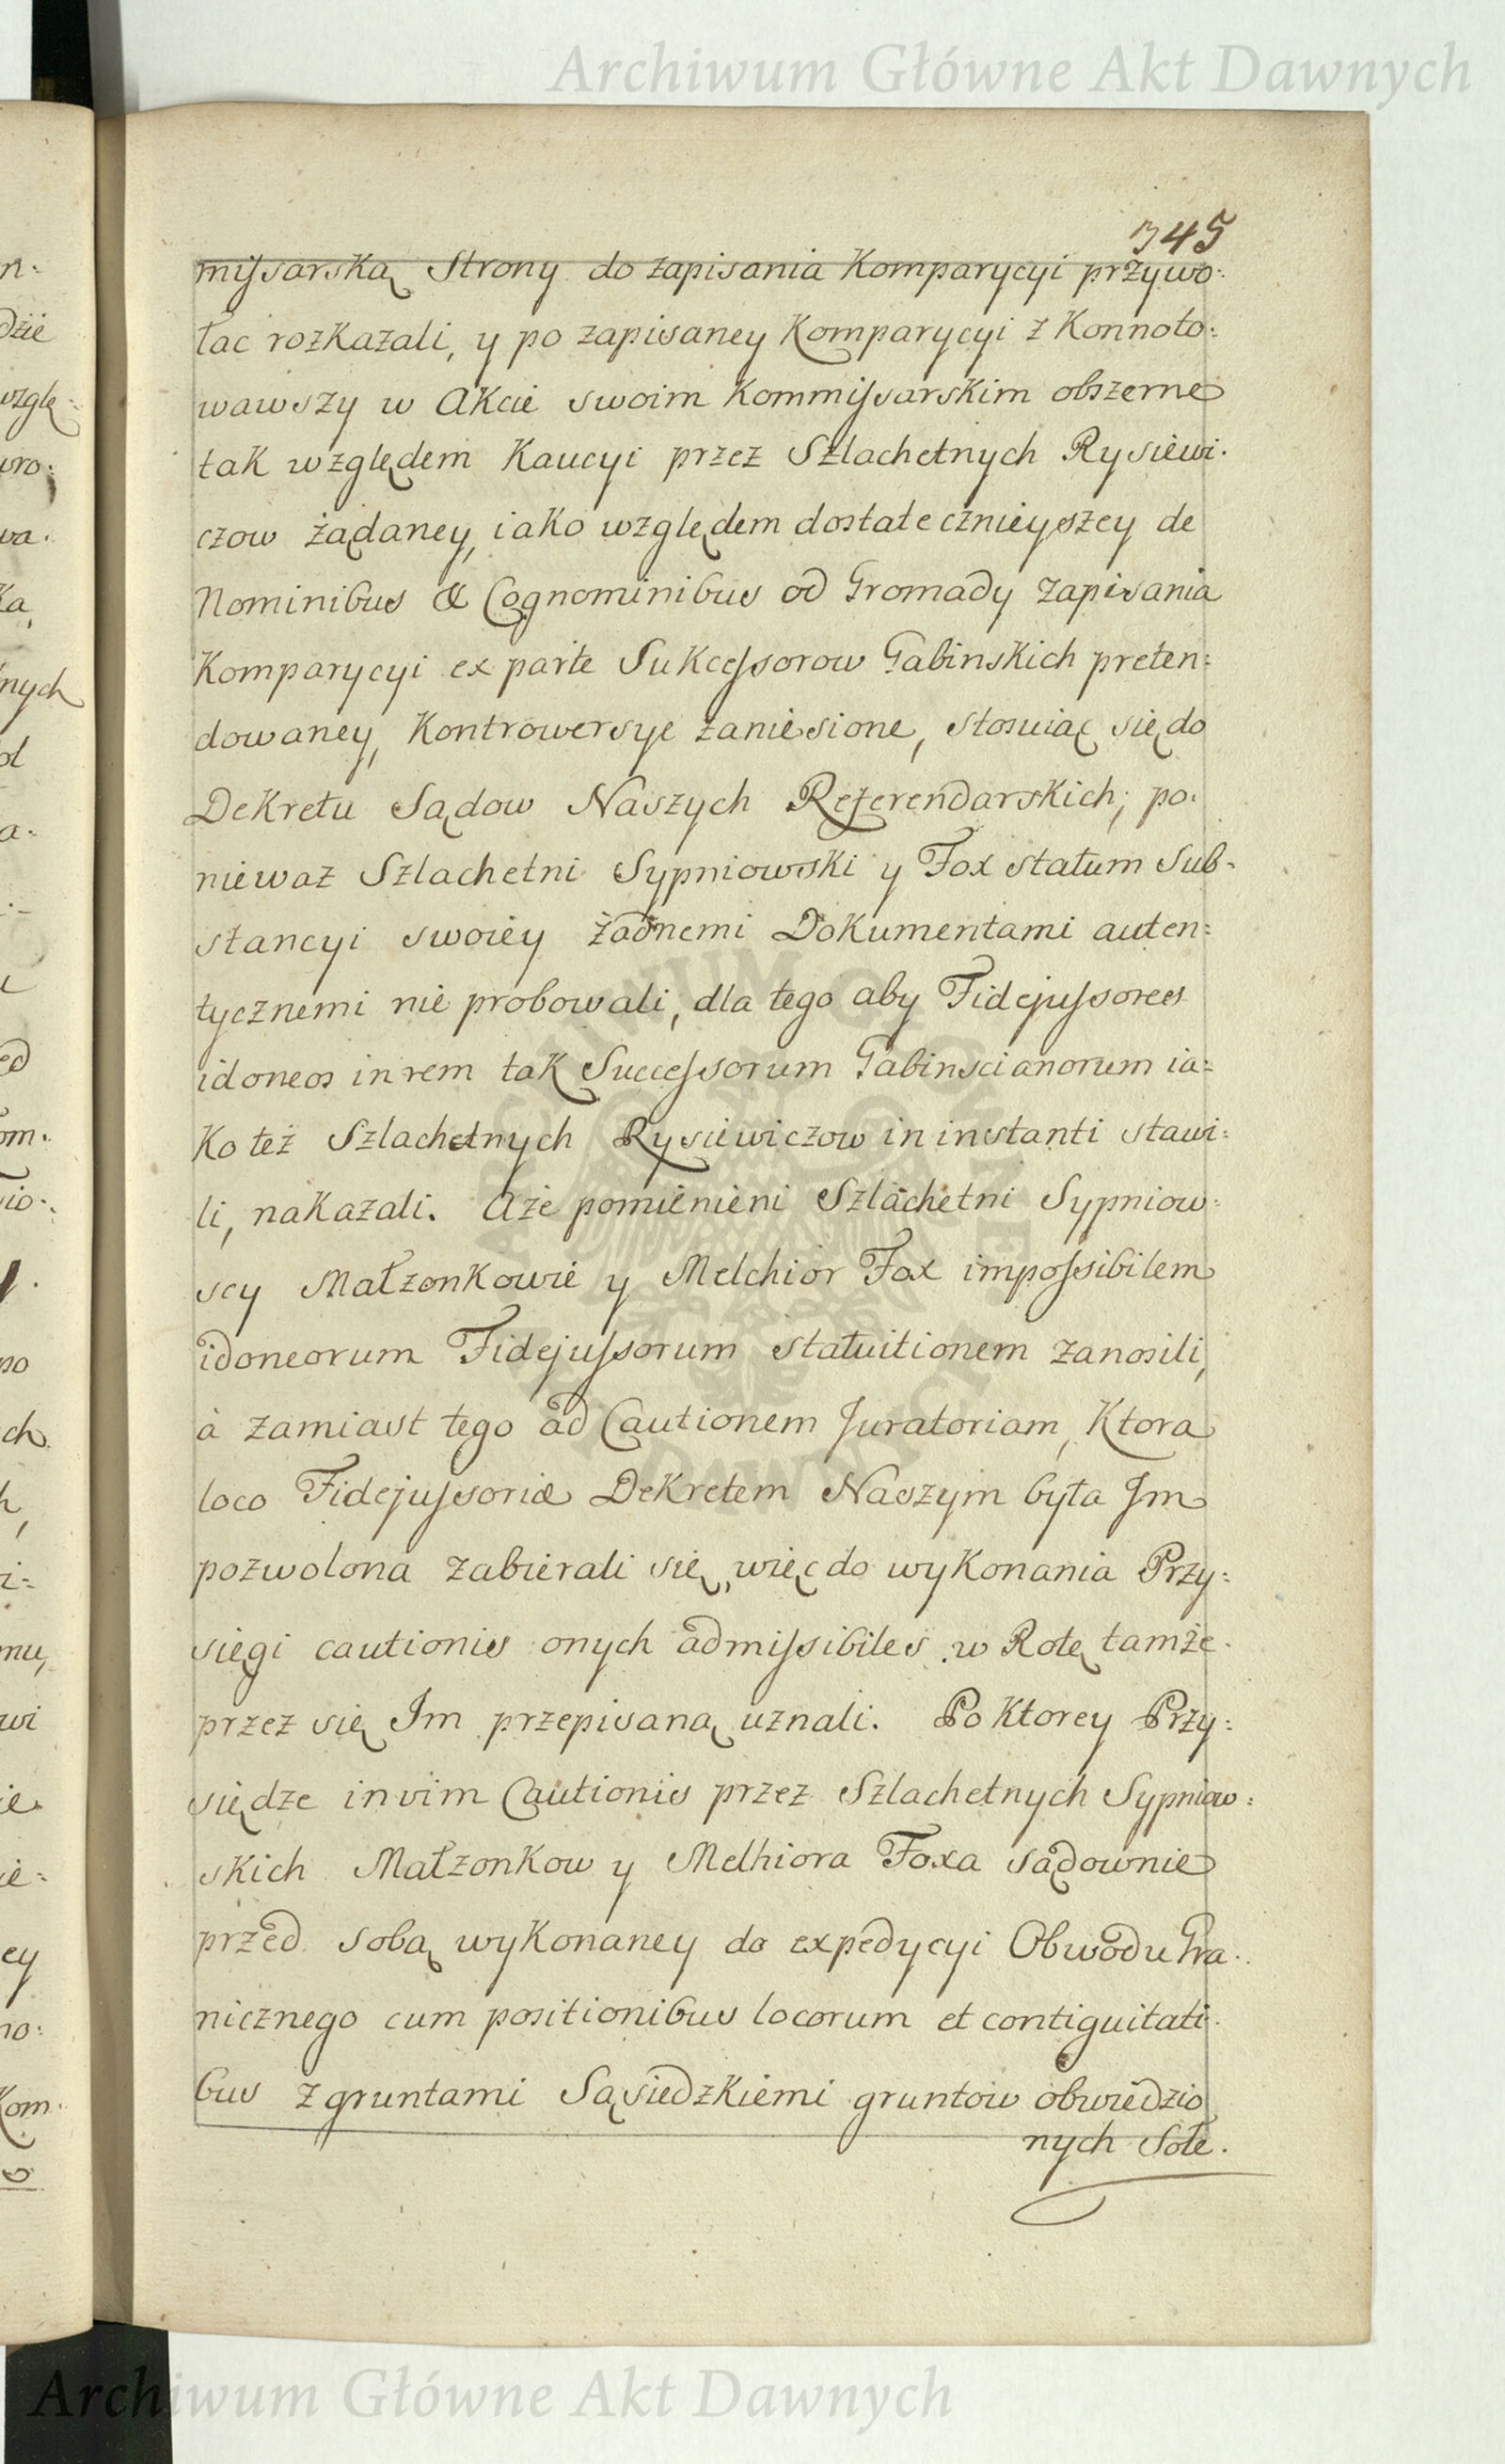 Archiwum Główne Akt Dawnych
345
missarską Strony do zapisania Komparycyi przywo:
łac rozkazali, y po zapisaney Komparycyi z Konnoto:
wawszy w Akcie swoim Kommissarskim obszerne
tak względem Kaucyi przez Szlachetnych Rysiewi:
czow żądaney, iako względem dostatecznieyszey de
Nominibus & Cognominibus od Gromady zapisania
Komparycyi ex parte Sukcessorow Gabinskich preten:
dowaney, Kontrowersye zaniesione, stosuiąc się do
Dekretu Sądow Naszych Referendarskich; po:
niewaz Szlachetni Sypniowski y Fox statum Sub-
stancyi swoiey żadnemi Dokumentami auten:
tycznemi nie probowali, dla tego aby Fidejussores
idoneos in rem tak Successorum Gabinscianorum ia:
ko też Szlachetnych Rysiewiczow in instanti stawi:
li, nakazali. Aże pomienieni Szlachetni Sypniow:
scy Małzonkowie y Melchior Fox impossibilem
idoneorum Fidejussorum statuitionem zanosili,
à zamiast tego ad Cautionem Juratoriam, Ktora
loco Fidejussoriæ Dekretem Naszym była Jm
pozwolona zabierali się, więc do wykonania Przy:
sięgi cautionis onych admissibiles w Rotę tamże
przez się Jm przepisaną uznali. Po Ktorey Przy:
siędze in vim Cautionis przez Szlachetnych Sypniow:
skich Małzonkow y Melhiora Foxa sądownie
przed sobą wykonaney do expedycyi Obwodu Gra:
nicznego cum positionibus locorum et contiguitati:
bus z gruntami Sąsiedzkiemi gruntow obwiedzio
nych Sołe.
Archiwum Główne Akt Dawnych